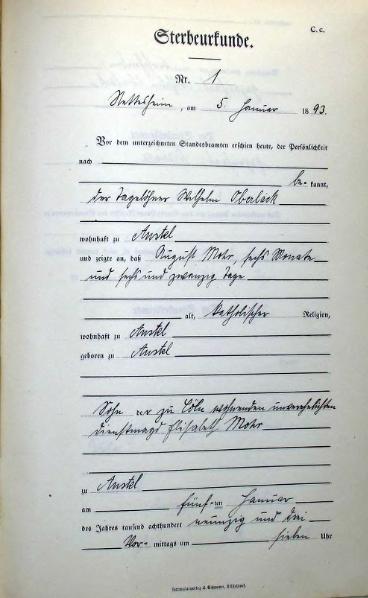 C. c.
Sterbeurkunde.
Nr. 1
Nettesheim, am 5 Januar 1893.
Vor dem unterzeichneten Standesbeamten erschien heute, der Persönlichkeit
nach
be- kannt,
der Tagelöhner Wilhelm Oberlack
wohnhaft zu Anstel
und zeigte an, daß August Mohr, sechs Monate
und sechs und zwanzig Tage
alt, katholischer Religion,
wohnhaft zu Anstel
geboren zu Anstel
Sohn der zu Cöln wohnenden unverehelichten
Dienstmagd Elisabeth Mohr
zu Anstel
am fünften Januar
des Jahres tausend achthundert neunzig und drei
Vor- mittags um sieben Uhr